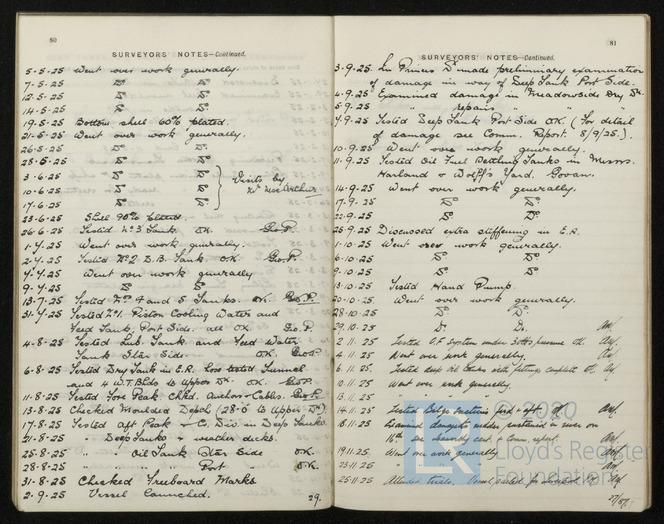 80
SURVEYORS' NOTES—Continued.
5-5-25 Went over work generally.
7-5-25 Do Do
12-5-25 Do Do
14-5-25 Do Do
19-5-25 Bottom shell 60% plated.
21-5-25 Went over work generally.
26-5-25 Do Do
28-5-25 Do Do
3-6-25 Do Do
10-6-25 Do Do Visits by
17-6-25 Do Do Mr MacArthur
23-6-25 Shell 90% plated
26-6-25 Tested No 3 Tank. OK. Geo.P.
1-7-25 Went over work generally.
2-7-25 Tested No 2 D.B. Tank. O.K. Geo.P.
7-7-25 Went over work generally
9-7-25 Do Do
13-7-25 Tested Nos 4 and 5 Tanks. OK. Geo.P.
31-7-25 Tested No 1. Piston Cooling Water and
Feed Tank, Port Side. all OK. Geo.P.
4-8-25 Tested Lub. Tank and Feed Water
Tank Star Side. OK. Geo.P.
6-8-25 Tested Dry Tank in E.R. tested Tunnel
and 4 W.T. Bhds to Upper Dk. OK. Geo.P.
11-8-25 Tested Fore Peak. Chkd. Anchors & Cables. Geo.P.
13-8-25 Checked Moulded Depth (28'0" to Upper Dk)
17-8-25 Tested Aft Peak & C. Div. in Deep Tanks.
21-8-25 " Deep Tanks & weather decks.
25-8-25 " Oil Tank Star Side OK.
28-8-25 " " Port " OK.
31-8-25 Checked Freeboard Marks
2-9-25 Vessel Launched. 29.
81
SURVEYORS' NOTES—Continued.
3-9-25 In Princes Dk made preliminary examination
of damage in way of Deep Tank Port Side.
4-9-25 Examined damage in Meadowside Dry Dk.
5-9-25 " repairs " "
7-9-25 Tested Deep Tank Port Side OK. (For detail
of damage see Comm. Report. 8/9/25.).
10-9-25 Went over work generally.
11-9-25 Tested Oil Fuel Settling Tanks in Messrs.
Harland & Wolff's Yard. Govan.
14-9-25 Went over work generally.
17-9-25 Do Do
22-9-25 Do Do
25-9-25 Discussed extra stiffening in E.R.
1-10-25 Went over work generally.
6-10-25 Do Do
9-10-25 Do Do
13-10-25 Tested Hand Pump.
20-10-25 Went over work generally.
28-10-25 Do Do
29.10.25 Do Do
2.11.25 Tested O.F. System under pressure OK.
4.11.25 Went over work generally.
6.11.25 Tested deep oil tanks with fittings complete OK.
10.11.25 Went over work generally.
13.11.25 " " "
14.11.25 Tested Bilge Suctions ford & aft. OK
18.11.25 Examined damaged rudder sustained in river on
16th see seaworthy cert. & Comm. report.
19.11.25 Went over work generally.
23.11.25 " " "
25.11.25 Attended trials. Vessel sailed for Liverpool
© 2020
Lloyd's Register
Foundation